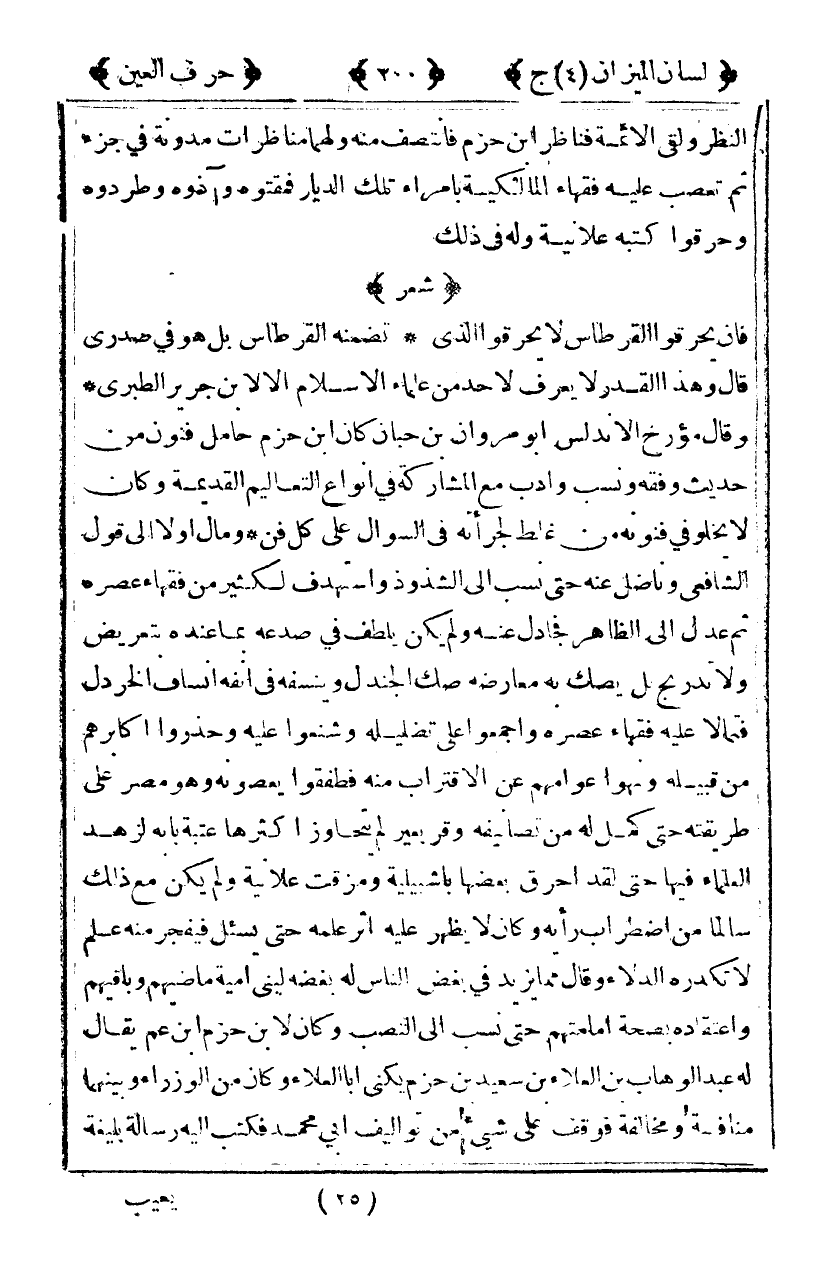 ﴿ لسان الميزان (٤) ج ﴾ ﴿ ٢٠٠ ﴾ ﴿ حرف العين ﴾
النظر ولقى الائمة فناظر ابن حزم فانتصف منه ولهما مناظرات مدونة في جزء
ثم تعصب عليه فقهاء المالكية بامراء تلك الديار فمقتوه وآذوه وطردوه
وحرقوا كتبه علانية وله فى ذلك
﴿ شعر ﴾
فان يحرقوا القرطاس لا يحرقوا الذى * تضمنه القرطاس بل هو في صدرى
قال وهذا القدر لا يعرف لاحد من علماء الاسلام الا لابن جرير الطبرى *
وقال مؤرخ الاندلس ابو مروان بن حبان كان ابن حزم حامل فنون من
حديث وفقه ونسب وادب مع المشاركة في انواع التعاليم القديمة وكان
لا يخلو في فنونه من غلط لجرأته فى السوال على كل فن * ومال اولا الى قول
الشافعى وناضل عنه حتى نسب الى الشذوذ واستهدف لكثير من فقهاء عصره
ثم عدل الى الظاهر فجادل عنه ولم يكن يلطف في صدعه بما عنده بتعريض
ولا تدريج بل يصك به معارضه صك الجندل وينسفه فى انفه انساف الخردل
فتمالا عليه فقهاء عصره واجمعوا على تضليله وشنعوا عليه وحذروا اكابرهم
من قبيله ونهوا عوامهم عن الاقتراب منه فطفقوا يعصونه وهو مصر على
طريقته حتى كمل له من تصانيفه وقر بعير لم يتجاوز اكثرها عتبة بابه لزهد
العلماء فيها حتى لقد احرق بعضها باشبيلية ومزقت علانية ولم يكن مع ذالك
سالما من اضطراب رأيه وكان لا يظهر عليه اثر علمه حتى يسئل فيفجر منه علم
لا تكدره الدلاء وقال مما يزيد في بغض الناس له بغضه لبنى امية ماضيهم وباقيهم
واعتقاده بصحة امامتهم حتى نسب الى النصب وكان لابن حزم ابن عم يقال
له عبد الوهاب بن العلاء بن سعيد بن حزم يكنى ابا العلاء وكان من الوزراء وبينهما
منافسة ومخالفة فوقف على شيء من تواليف ابي محمد فكتب اليه رسالة بليغة
(٢٥) يعيب